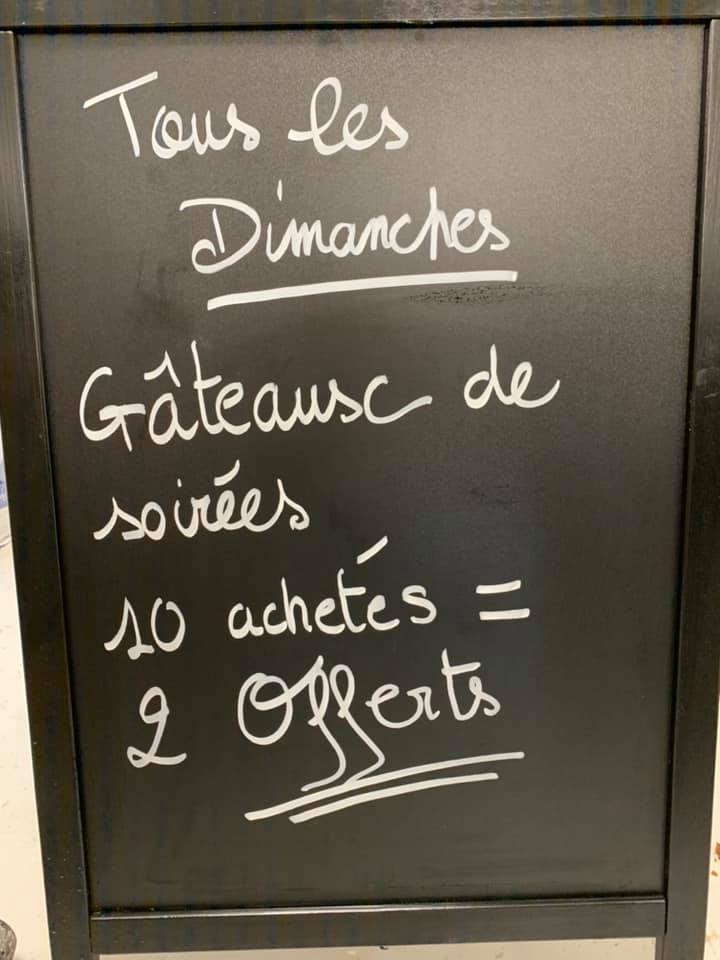 Tous les
Dimanches
Gâteaux de
soirées
10 achetés =
2 Offerts